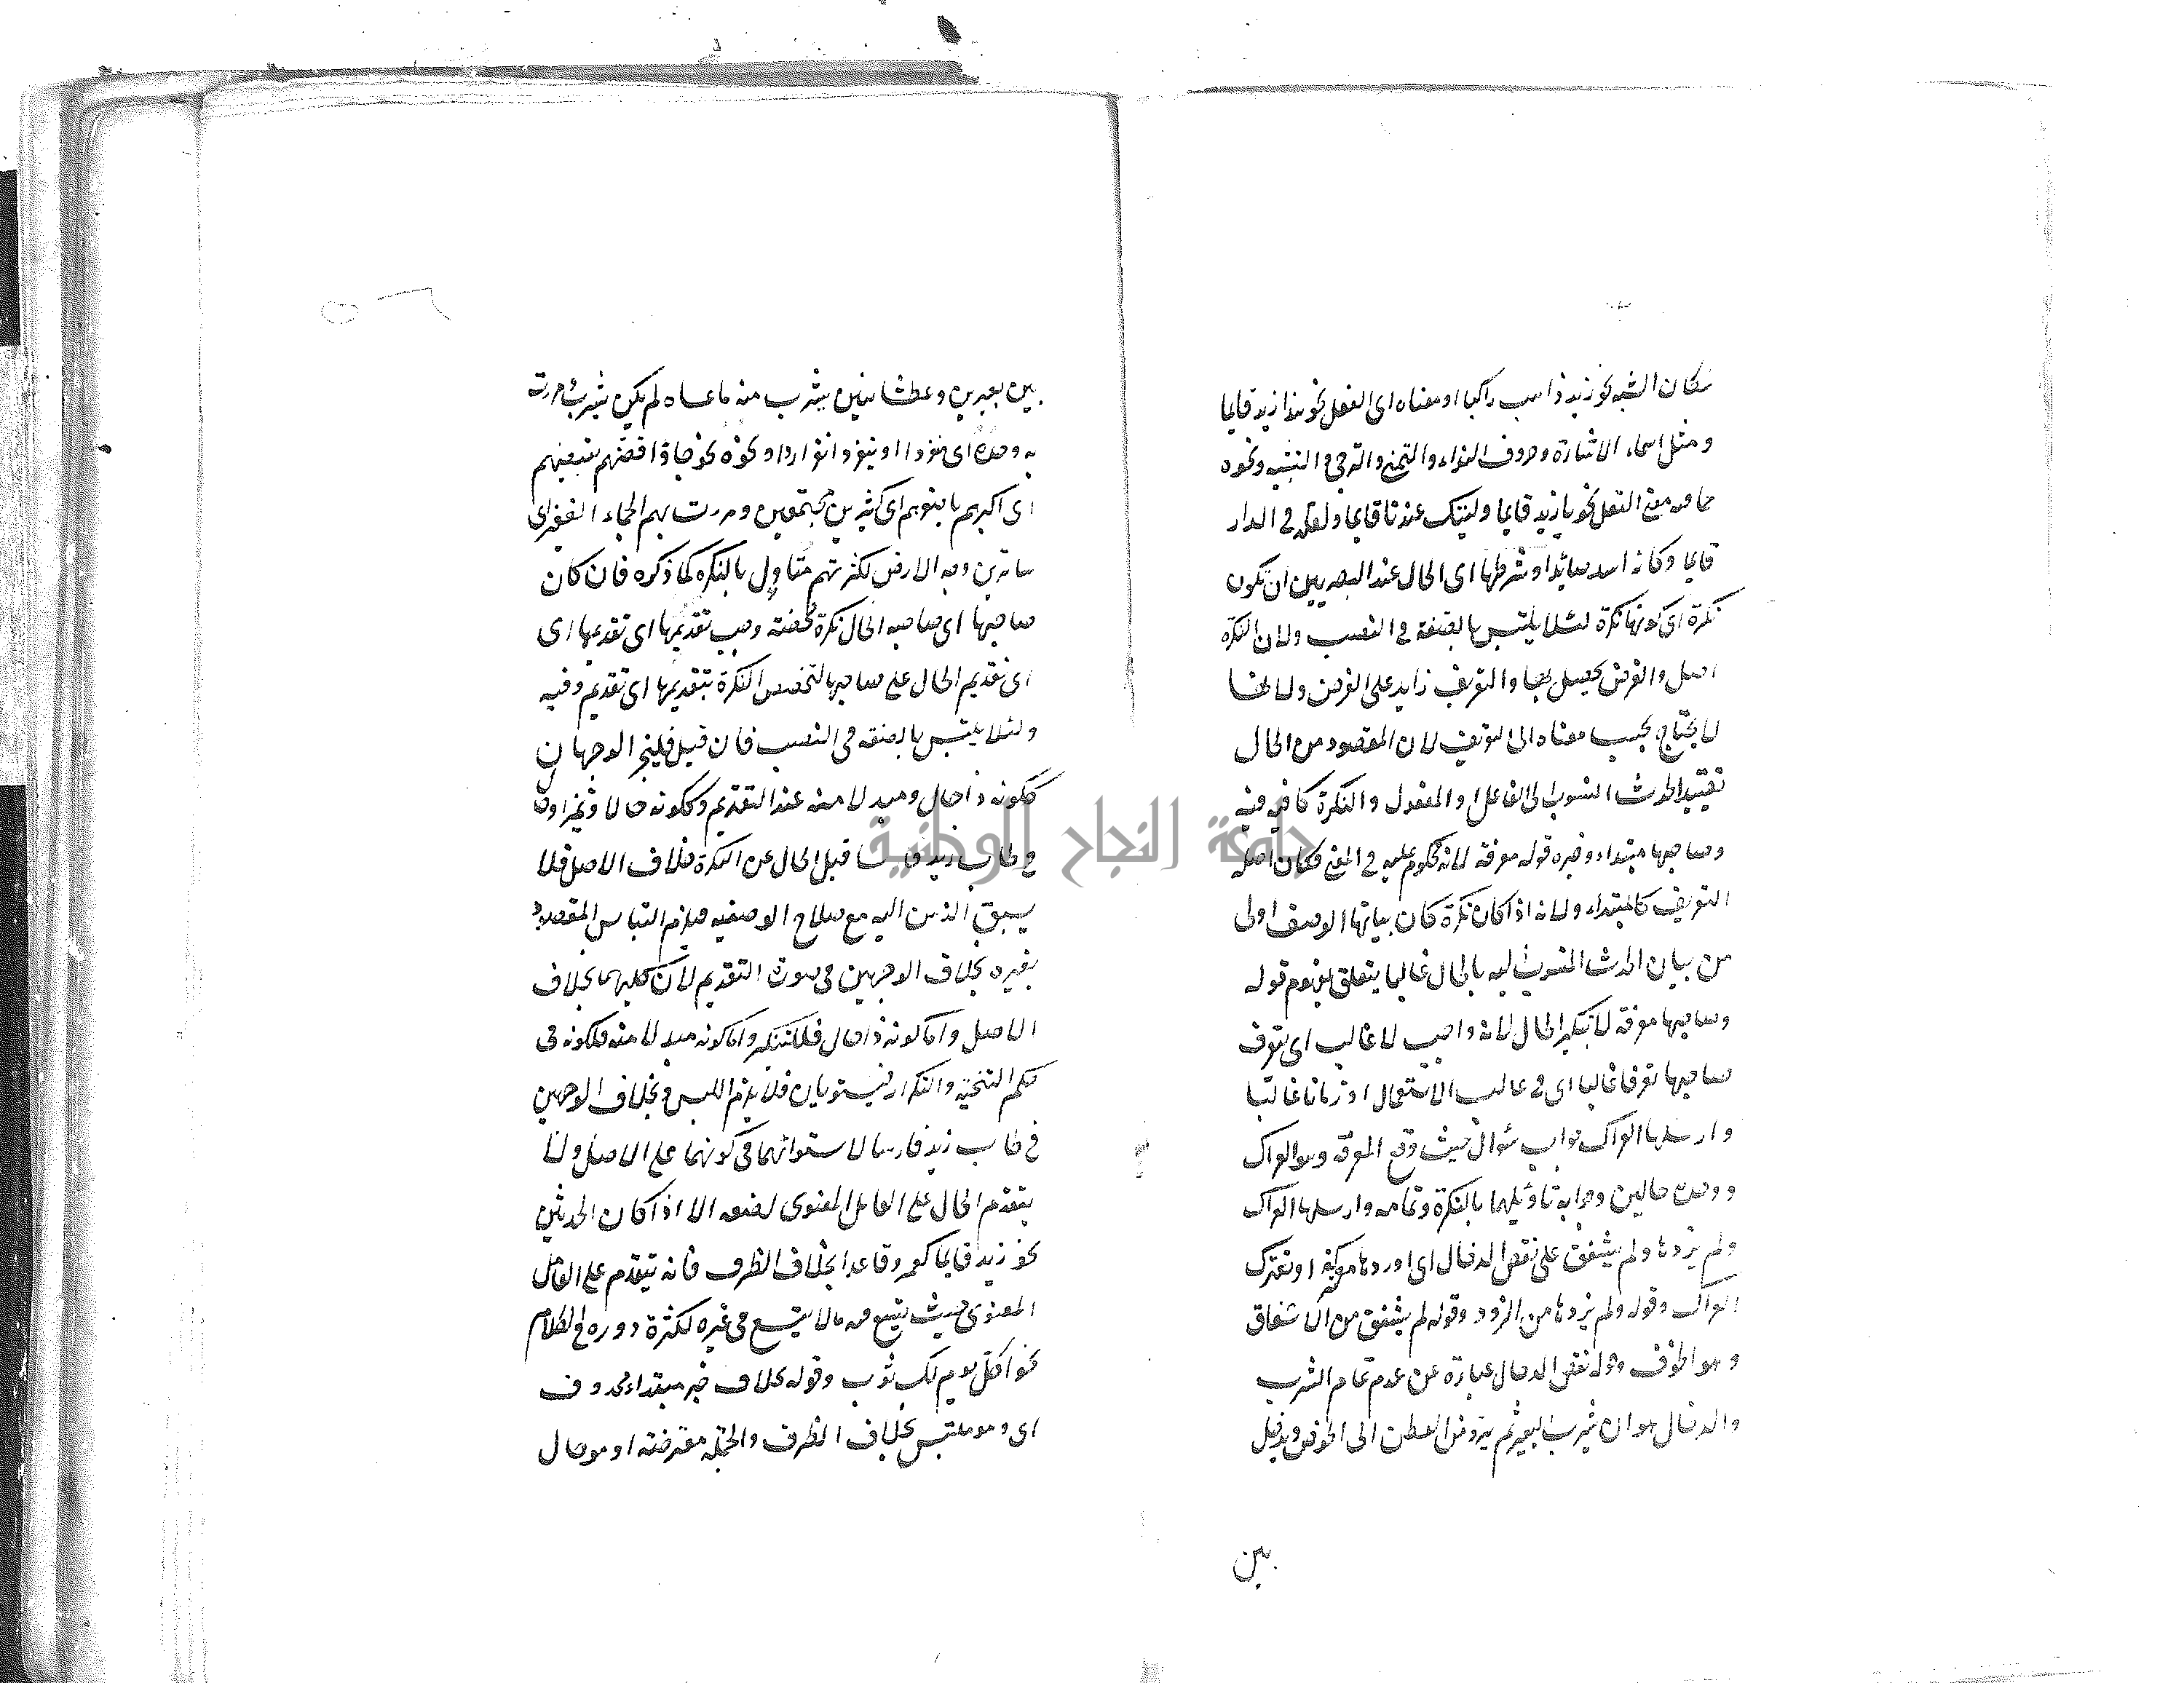 مكان الشبه نحو زيد ذاهب راكبا او معناه اى الفعل نحو هذا زيد قايما
ومثل اسماء الاشارة وحروف النداء والتمنى والترجى والتنبيه ونحوه
مما فيه معنى الفعل نحو يا زيد قايما وليتك عندنا قايما ولعله فى الدار
قايما وكانه اسد صائدا وشرطها اى الحال عند البصريين ان تكون
نكرة اى كونها نكرة لئلا يلتبس بالصفة فى النصب ولان النكرة
اصل والغرض يحصل بها والتعريف زايد على الغرض ولانها
لا يحتاج بحسب معناه الى التعريف لان المقصود من الحال
تقييد الحدث المنسوب الى الفاعل او المفعول والنكرة كافية فيه
وصاحبها مبتداء وخبره قوله معرفة لانه محكوم عليه فى المعنى فكان اصله
التعريف كالمبتداء ولانه اذا كان نكرة كان بيانها الوصف اولى
من بيان الحدث المنسوب اليه بالحال غالبا يتعلق بمفهوم قوله
وصاحبها معرفة لا بتنكير الحال لانه واجب لا غالب اى تعرف
صاحبها تعرفا غالبا اى فى غالب الاستعمال او زمانا غالبا
وارسلها العراك جواب سؤال حيث وقع المعرفة وهو العراك
ووحده حالين وجوابه تاويلهما بالنكرة وتمامه وارسلها العراك
ولم يزدها ولم يشفق على نغص الدخال اى اوردها معركة او تعترك
العراك وقوله ولم يزدها من الزود وقوله لم يشفق من الاشفاق
وهو الخوف وقوله نغص الدخال عبارة عن عدم تمام الشرب
والدخال هو ان يشرب البعير ثم يرد من العطن الى الحوض ويدخل
بين
بين بعيرين وعطشانين يشرب منه ما عساه لم يكن يشرب ومررت
به وحده اى منفردا او ينفرد انفرادا ونحوه نحو جاؤا قضهم بقضيضهم
اى اكبرهم باصغرهم اى كثيرين مجتمعين ومررت بهم الجماء الغفير اى
ساترين وجه الارض لكثرتهم متاول بالنكرة كما ذكره فان كان
صاحبها اى صاحب الحال نكرة محضة وجب تقديمها اى تقديمها اى
اى تقديم الحال على صاحبها لتخصص النكرة بتقديمها اى تقديم وفيه
ولئلا يلتبس بالصفة فى النصب فان قيل فليجز الوجهان
ككونه ذا حال ومبدلا منه عند التقديم وككونه حالا وتميزا
فى طاب زيد فارسا قيل الحال عن النكرة خلاف الاصل فلا
يسبق الذهن اليه مع صلاح الوصفية فيلزم التباس المقصود
بغيره بخلاف الوجهين فى صورة التقديم لان كليهما بخلاف
الاصل واما كونه ذا حال فلتنكير واما كونه مبدلا منه فلكونه فى
حكم التنحية والتكرار فيستويان فلا يلزم اللبس وبخلاف الوجهين
فى طاب زيد فارسا لاستوائهما فى كونهما على الاصل ولا
يتقدم الحال على العامل المعنوى لضعفه الا اذا كان الحدثين
نحو زيد قايما كعمرو قاعدا بخلاف الظرف فانه يتقدم على العامل
المعنوى حيث يتسع فيه ما لا يتسع فى غيره لكثرة دوره فى الكلام
نحو اكل يوم لك ثوب وقوله بخلاف خبر مبتداء محذوف
اى وهو ملتبس بخلاف الظرف والجملة معترضة او هو حال
جامعة النجاح الوطنية